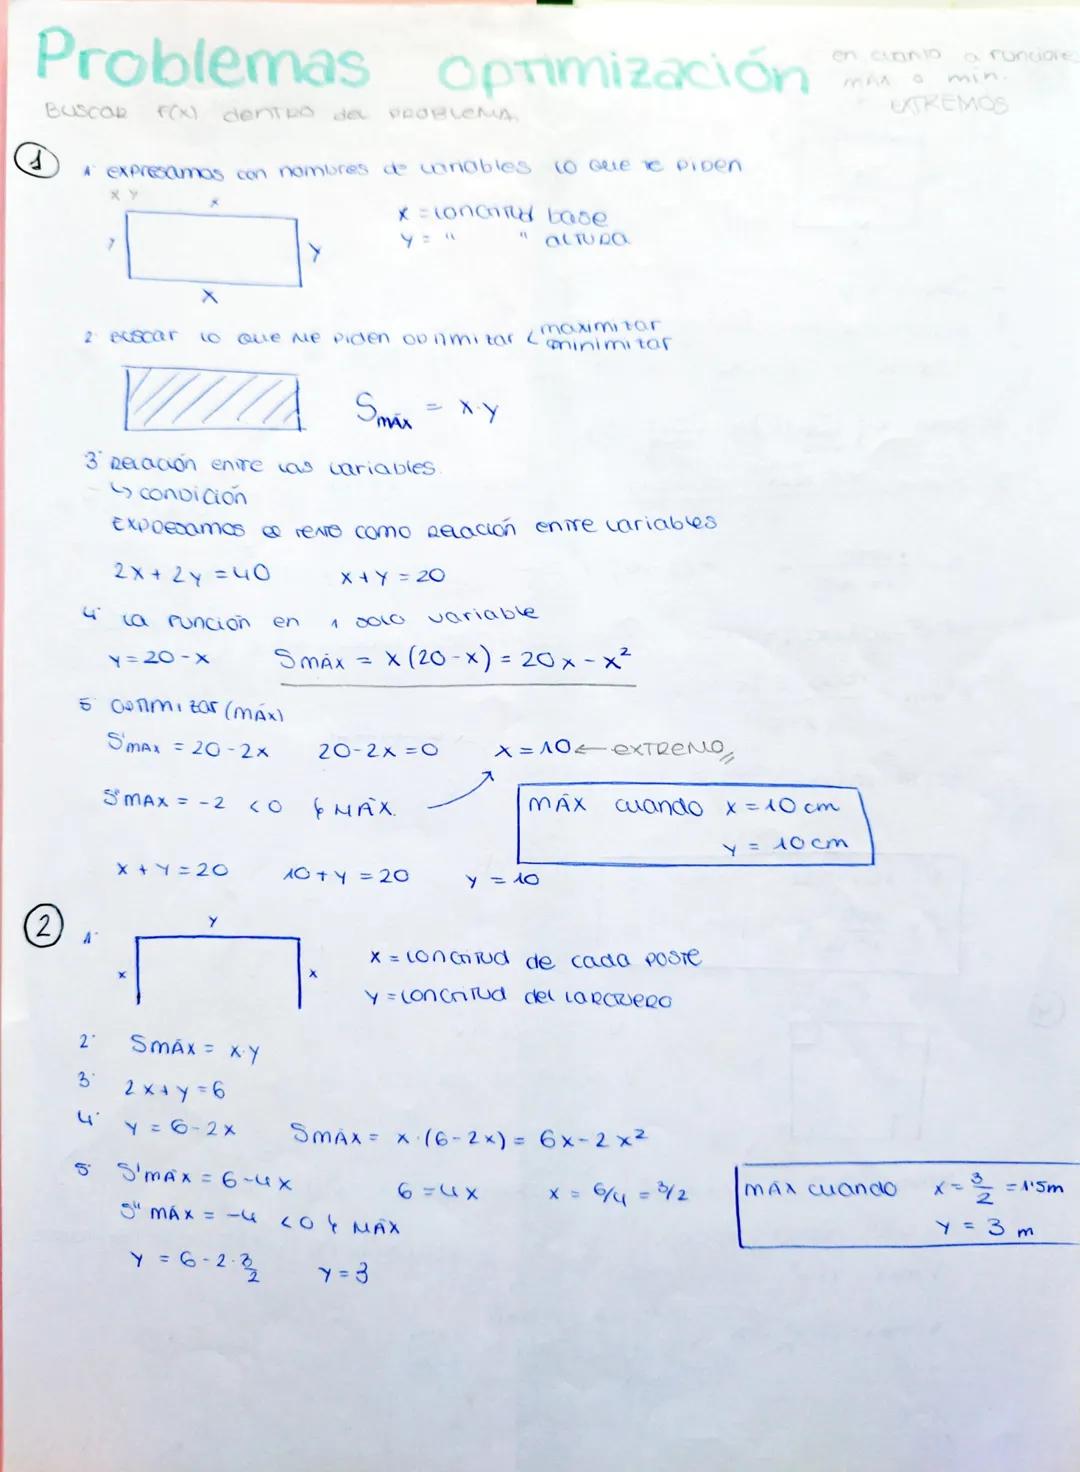 Problemas Optimización
en cuanto a funciones
máx o min.
EXTREMOS
BUSCAR F(X) dentro del PROBLEMA
1
1º expresamos con nombres de variables lo que te piden
x y
x
y
y
x
x = longitud base
y = " " altura
2º Buscar lo que me piden optimizar < maximizar
minimizar
Smáx = x·y
3º Relación entre las variables.
↳ condición
Expresamos el texto como relación entre variables
2x + 2y = 40 x + y = 20
4º la función en 1 solo variable
y = 20 - x Smáx = x (20 - x) = 20x - x²
5º optimizar (máx)
S'máx = 20 - 2x 20 - 2x = 0 x = 10 ← EXTREMO
S''máx = -2 < 0 ↳ MÁX.
MÁX cuando x = 10 cm
y = 10 cm
x + y = 20 10 + y = 20 y = 10
2
1º
y
x
x
x = longitud de cada poste
y = longitud del larguero
2º Smáx = x·y
3º 2x + y = 6
4º y = 6 - 2x Smáx = x·(6 - 2x) = 6x - 2x²
5º S'máx = 6 - 4x 6 = 4x x = 6/4 = 3/2
S'' máx = -4 < 0 ↳ MÁX
MÁX cuando x = 3/2 = 1'5m
y = 3 m
y = 6 - 2·3/2 y = 3